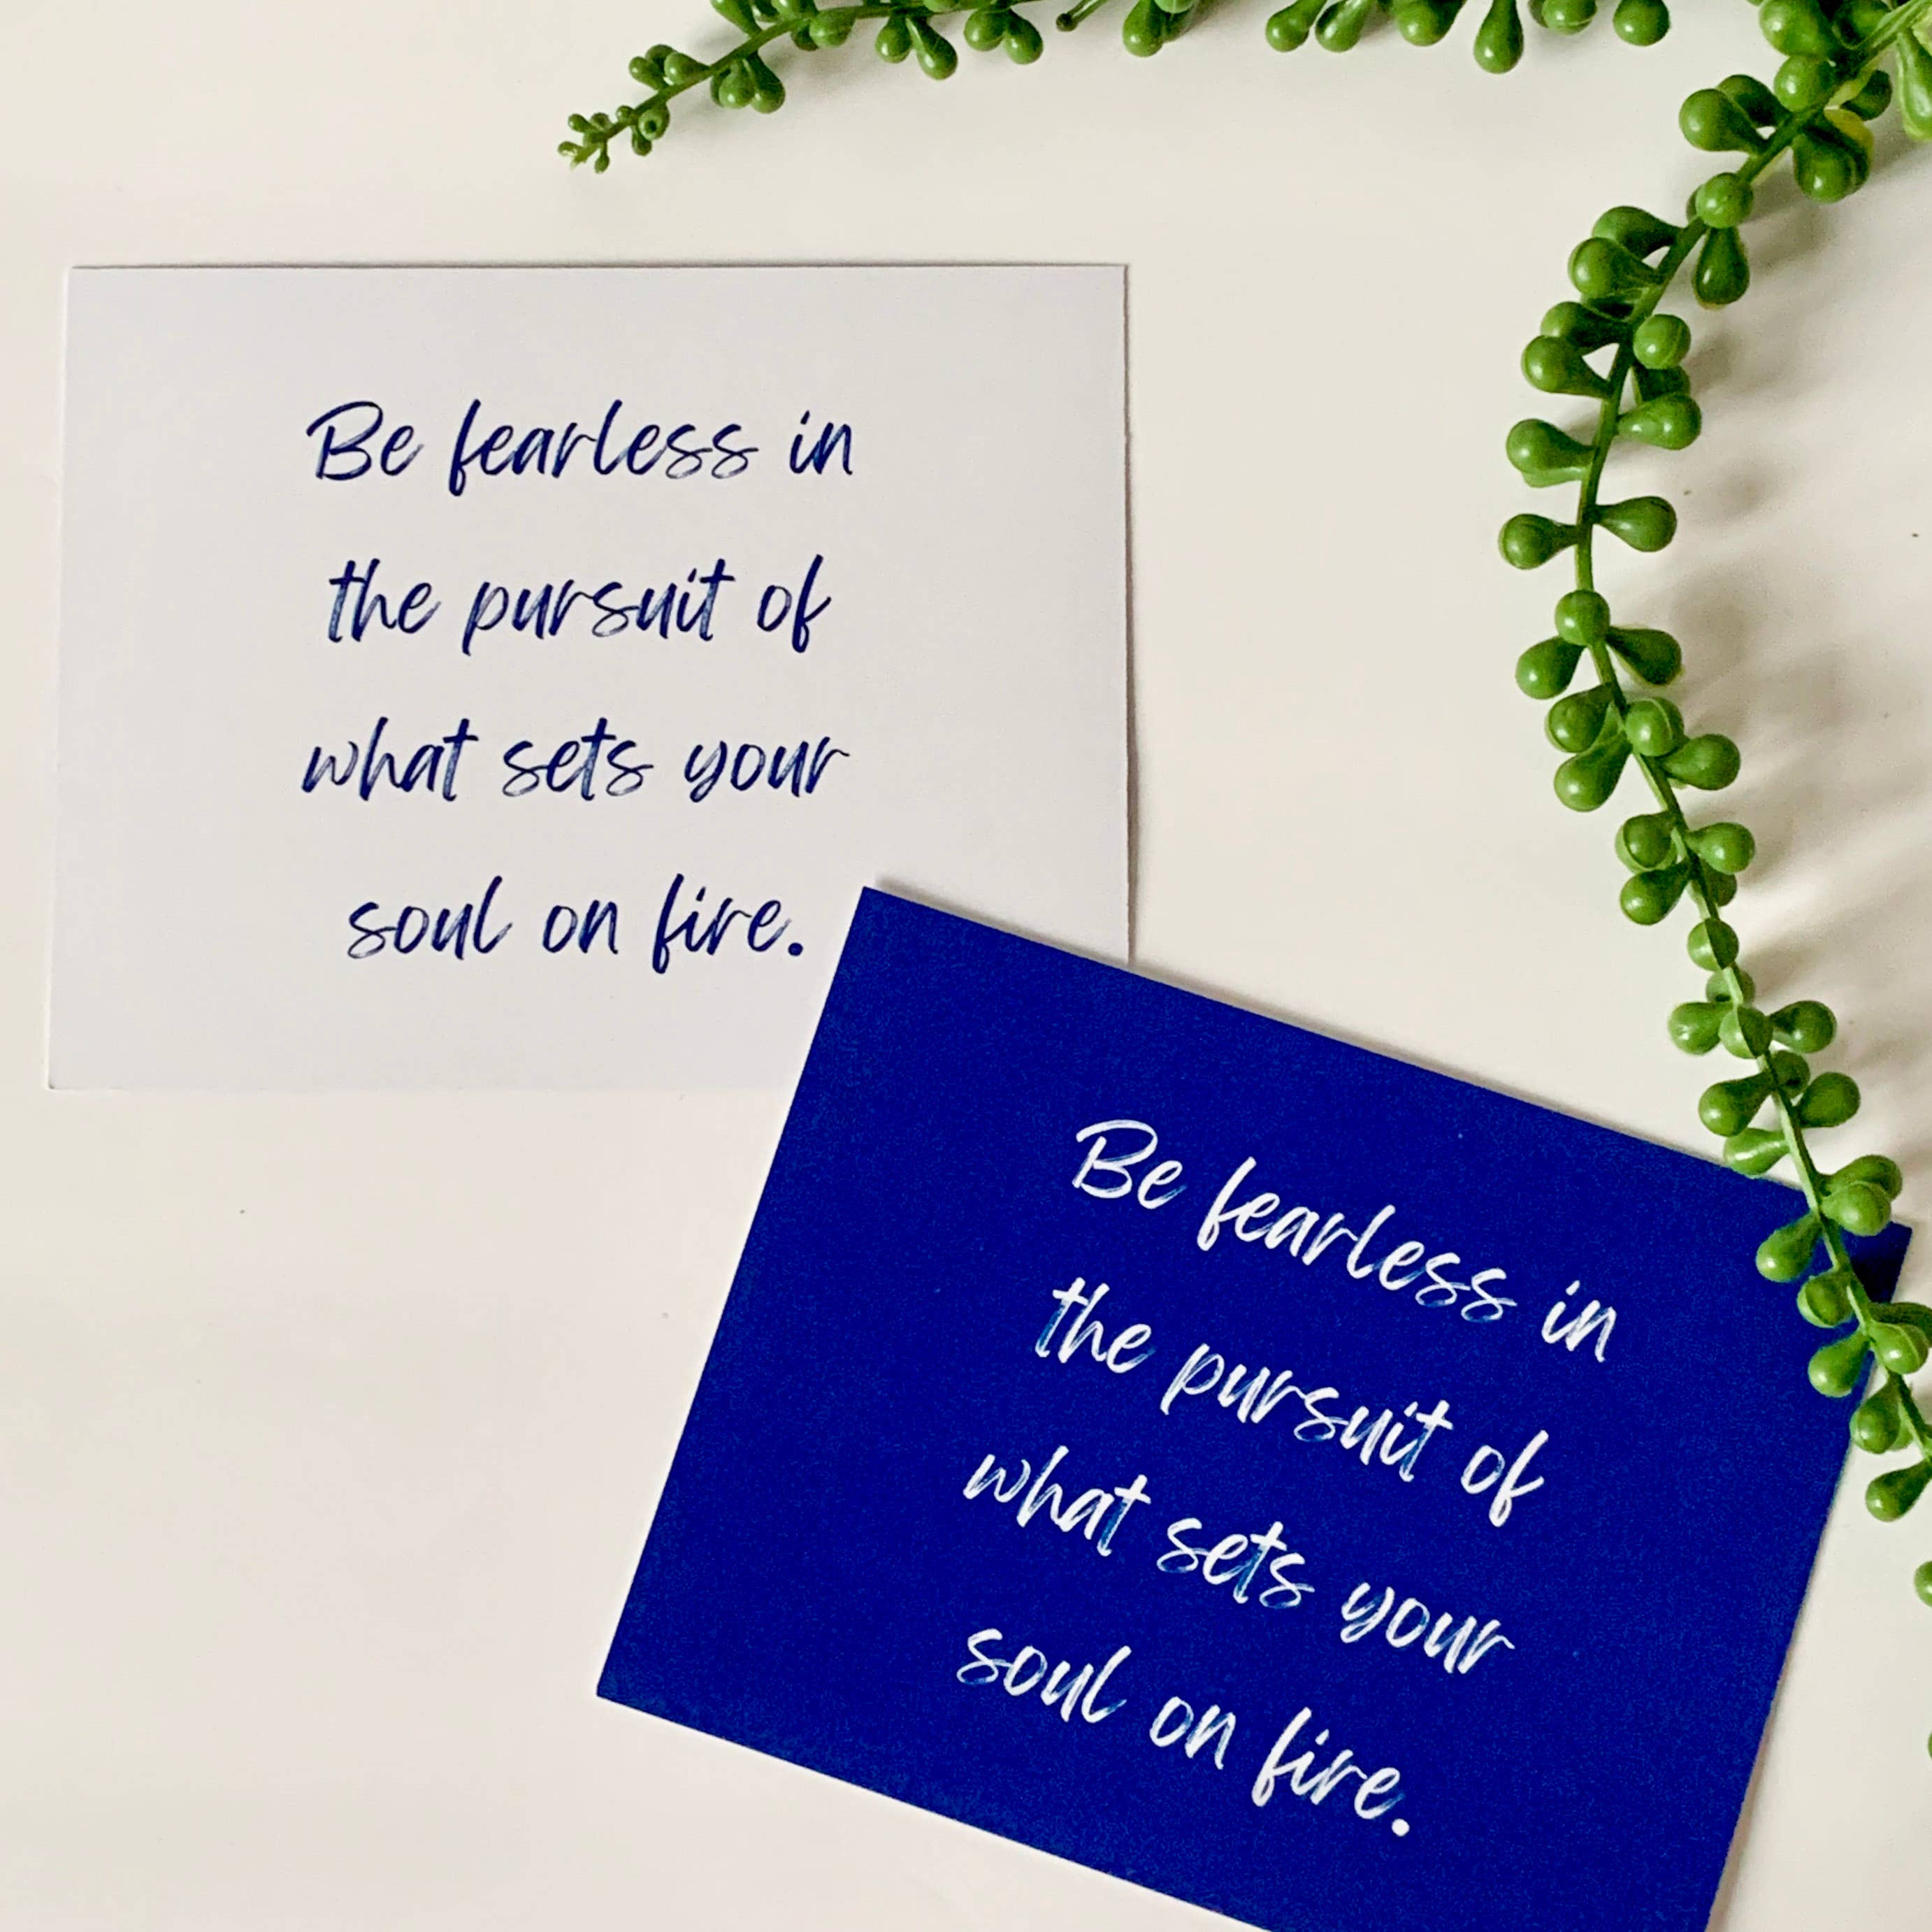 Be fearless in
the pursuit of
what sets your
soul on fire.
Be fearless in
the pursuit of
what sets your
soul on fire.